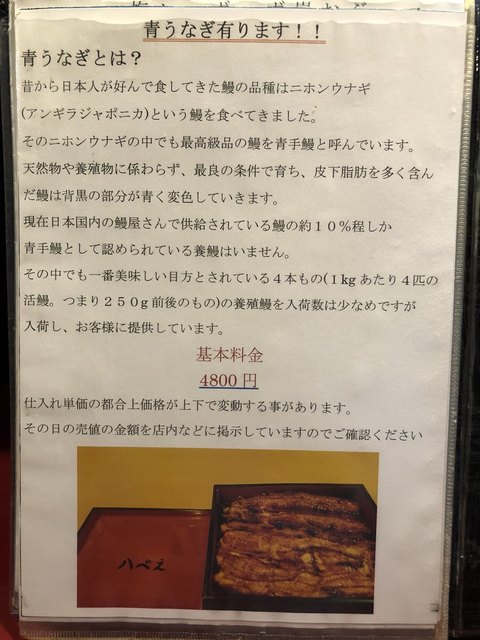 青うなぎ有ります！！
青うなぎとは？
昔から日本人が好んで食してきた鰻の品種はニホンウナギ
(アンギラジャポニカ)という鰻を食べてきました。
そのニホンウナギの中でも最高級品の鰻を青手鰻と呼んでいます。
天然物や養殖物に係わらず、最良の条件で育ち、皮下脂肪を多く含ん
だ鰻は背黒の部分が青く変色していきます。
現在日本国内の鰻屋さんで供給されている鰻の約１０％程しか
青手鰻として認められている養鰻はいません。
その中でも一番美味しい目方とされている４本もの(１kg あたり４匹の
活鰻。つまり２５０g 前後のもの)の養殖鰻を入荷数は少なめですが
入荷し、お客様に提供しています。
基本料金
4800 円
仕入れ単価の都合上価格が上下で変動する事があります。
その日の売値の金額を店内などに掲示していますのでご確認ください
八べえ